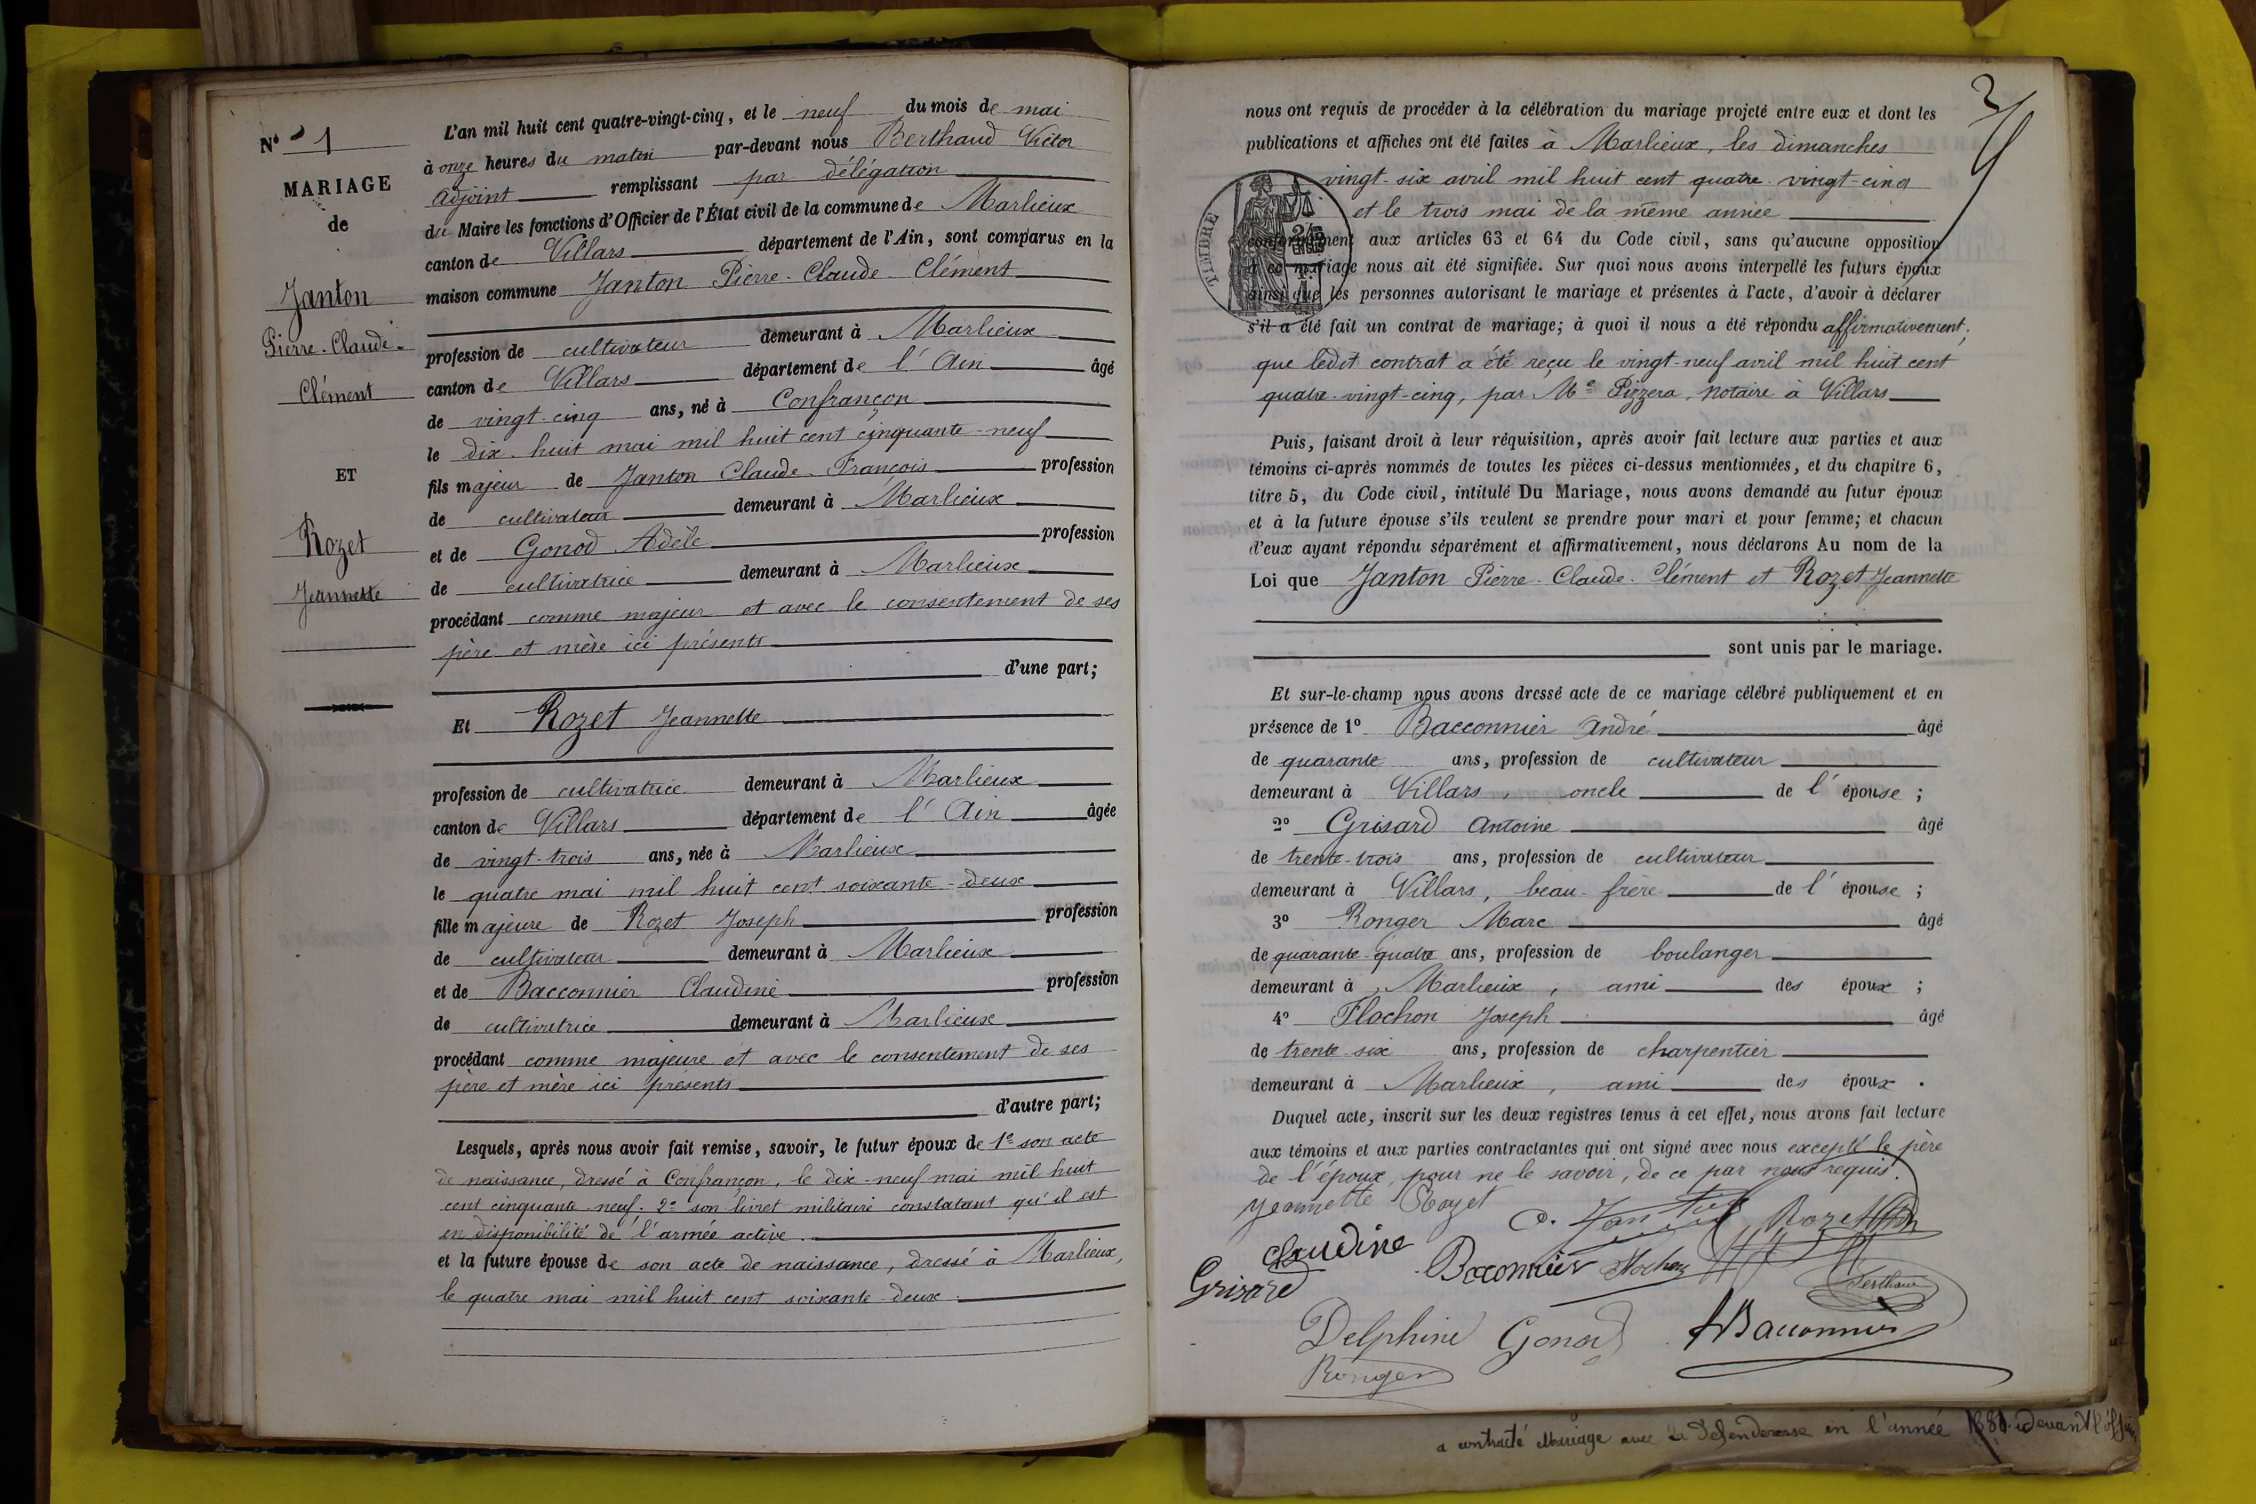 N° 1
MARIAGE
de
Janton
Pierre-Claude-
Clément
ET
Rozet
Jeannette
L'an mil huit cent quatre-vingt-cinq, et le neuf du mois de mai
à onze heures du matin par-devant nous Berthaud Victor
adjoint remplissant par délégation
du Maire les fonctions d'Officier de l'État civil de la commune de Marlieux
canton de Villars département de l'Ain, sont comparus en la
maison commune Janton Pierre-Claude-Clément
profession de cultivateur demeurant à Marlieux
canton de Villars département de l'Ain âgé
de vingt-cinq ans, né à Confrançon
le dix-huit mai mil huit cent cinquante-neuf
fils majeur de Janton Claude-François profession
de cultivateur demeurant à Marlieux
et de Gonod Adèle profession
de cultivatrice demeurant à Marlieux
procédant comme majeur et avec le consentement de ses
père et mère ici présents
d'une part;
Et Rozet Jeannette
profession de cultivatrice demeurant à Marlieux
canton de Villars département de l'Ain âgée
de vingt-trois ans, née à Marlieux
le quatre mai mil huit cent soixante-deux
fille majeure de Rozet Joseph profession
de cultivateur demeurant à Marlieux
et de Bacconnier Claudine profession
de cultivatrice demeurant à Marlieux
procédant comme majeure et avec le consentement de ses
père et mère ici présents
d'autre part;
Lesquels, après nous avoir fait remise, savoir, le futur époux de 1° son acte
de naissance, dressé à Confrançon, le dix-neuf mai mil huit
cent cinquante-neuf. 2° son livret militaire constatant qu'il est
en disponibilité de l'armée active.
et la future épouse de son acte de naissance, dressé à Marlieux,
le quatre mai mil huit cent soixante-deux.
nous ont requis de procéder à la célébration du mariage projeté entre eux et dont les
publications et affiches ont été faites à Marlieux, les dimanches
vingt-six avril mil huit cent quatre-vingt-cinq
et le trois mai de la même année
TIMBRE
conformément aux articles 63 et 64 du Code civil, sans qu'aucune opposition
à ce mariage nous ait été signifiée. Sur quoi nous avons interpellé les futurs époux
ainsi que les personnes autorisant le mariage et présentes à l'acte, d'avoir à déclarer
s'il a été fait un contrat de mariage; à quoi il nous a été répondu affirmativement;
que ledit contrat a été reçu le vingt-neuf avril mil huit cent
quatre-vingt-cinq, par Me Pizzera, notaire à Villars
Puis, faisant droit à leur réquisition, après avoir fait lecture aux parties et aux
témoins ci-après nommés de toutes les pièces ci-dessus mentionnées, et du chapitre 6,
titre 5, du Code civil, intitulé Du Mariage, nous avons demandé au futur époux
et à la future épouse s'ils veulent se prendre pour mari et pour femme; et chacun
d'eux ayant répondu séparément et affirmativement, nous déclarons Au nom de la
Loi que Janton Pierre-Claude-Clément et Rozet Jeannette
sont unis par le mariage.
Et sur-le-champ nous avons dressé acte de ce mariage célébré publiquement et en
présence de 1° Bacconnier André âgé
de quarante ans, profession de cultivateur
demeurant à Villars, oncle de l'épouse;
2° Grisard Antoine âgé
de trente-trois ans, profession de cultivateur
demeurant à Villars, beau-frère de l'épouse;
3° Ronger Marc âgé
de quarante-quatre ans, profession de boulanger
demeurant à Marlieux, ami des époux;
4° Flochon Joseph âgé
de trente-six ans, profession de charpentier
demeurant à Marlieux, ami des époux.
Duquel acte, inscrit sur les deux registres tenus à cet effet, nous avons fait lecture
aux témoins et aux parties contractantes qui ont signé avec nous excepté le père
de l'époux, pour ne le savoir, de ce par nous requis.
Jeannette Rozet C. Janton Rozet
Claudine Bacconnier Flochon
Grisard Berthaud
Delphine Gonod ABacconnier
Ronger
a contracté Mariage avec la Défenderesse en l'année